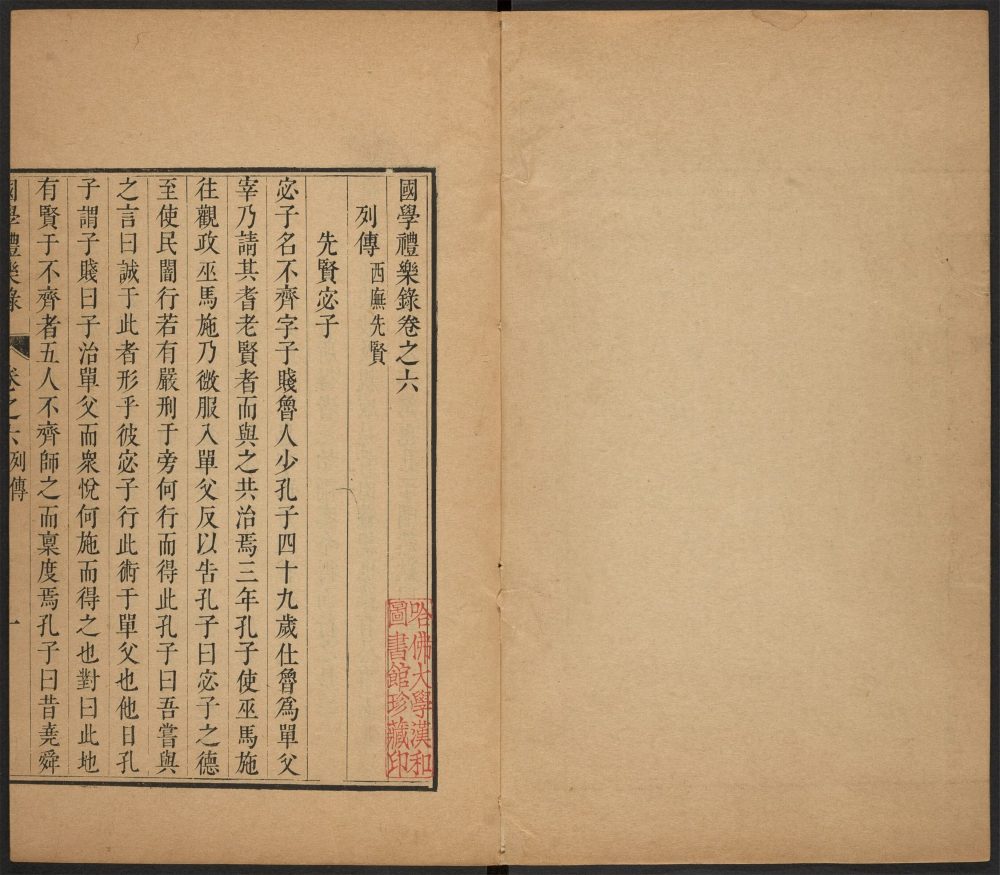 國學禮樂錄卷之六
列傳 西廡先賢
先賢宓子
宓子名不齊字子賤魯人少孔子四十九歲仕魯爲單父
宰乃請其耆老賢者而與之共治焉三年孔子使巫馬施
往觀政巫馬施乃微服入單父反以告孔子曰宓子之德
至使民闇行若有嚴刑于旁何行而得此孔子曰吾嘗與
之言曰誠于此者形乎彼宓子行此術于單父也他日孔
子謂子賤曰子治單父而衆悅何施而得之也對曰此地
有賢于不齊者五人不齊師之而稟度焉孔子曰昔堯舜
國學禮樂錄 卷之六 列傳 一
哈佛大學漢和
圖書館珍藏印